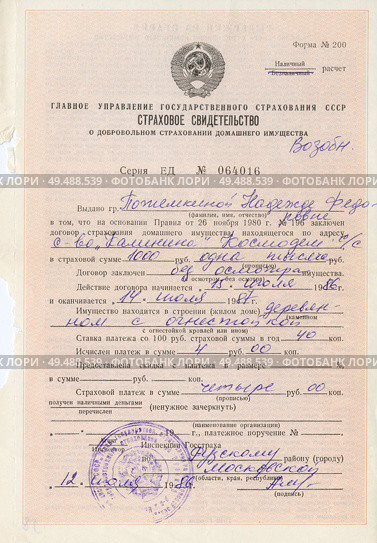 Форма № 200
Наличный
Безналичный расчет
ГЛАВНОЕ УПРАВЛЕНИЕ ГОСУДАРСТВЕННОГО СТРАХОВАНИЯ СССР
СТРАХОВОЕ СВИДЕТЕЛЬСТВО
О ДОБРОВОЛЬНОМ СТРАХОВАНИИ ДОМАШНЕГО ИМУЩЕСТВА
Возобн.
Серия ЕД № 064016
БАНК ЛОРИ - 49.488.539 - ФОТОБАНК ЛОРИ - 49.488.539 - ФОТОБАНК
Выдано гр. Потемкиной Надежде Федо
(фамилия, имя, отчество) ровне
в том, что на основании Правил от 26 ноября 1980 г. № 196 заключен
договор страхования домашнего имущества находящегося по адресу
с-во "Калинина" Космодем с/с
в страховой сумме 1000 одна тысяча руб.
(прописью)
Договор заключен без осмотра имущества.
(с осмотром, без осмотра)
Действие договора начинается " 15 " июля 1986г.
и оканчивается " 14 " июля 1987г.
Имущество находится в строении (жилом доме) деревян
(каменном
ном с огнестойкой
с огнестойкой кровлей или ином)
Ставка платежа со 100 руб. страховой суммы в год 40 коп.
Исчислен платеж в сумме 4 руб. 00 коп.
БАНК ЛОРИ - 49.488.539 - ФОТОБАНК ЛОРИ - 49.488.539 - ФОТОБАНК
Предоставлена скидка с платежа в размере %
в сумме руб. коп.
Страховой платеж в сумме четыре руб. 00 коп.
(прописью)
получен наличными деньгами
перечислен (ненужное зачеркнуть)
(наименование организации)
19 г., платежное поручение №
Инспектор Инспекции Госстраха
по Истринскому району (городу)
Московской
(области, края, республики)
12 июля 1986г.
(подпись)